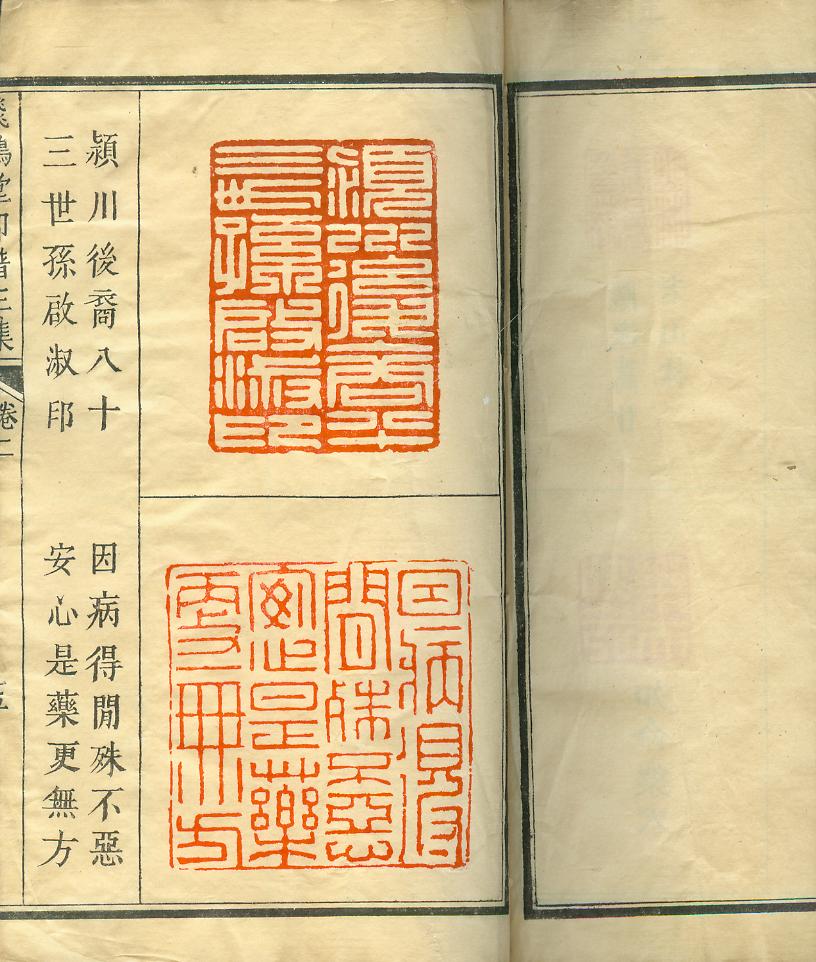 潁川後裔八十
三世孫啟淑印
潁川後裔八十
三世孫啟淑印
因病得閒殊不惡
安心是藥更無方
因病得
閒殊不惡
安心是藥
更無方
飛鴻堂印譜三集
卷二